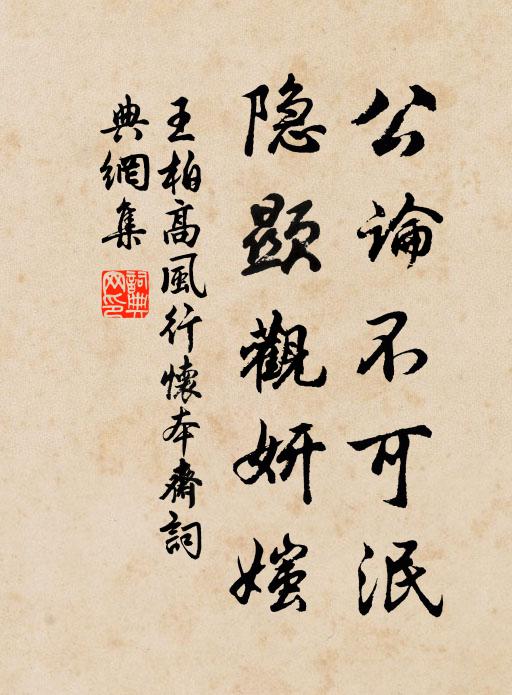 公論不可泯
隐顯觀妍媸
王柏高風行懷本齋詞
典網集
詞典
网印